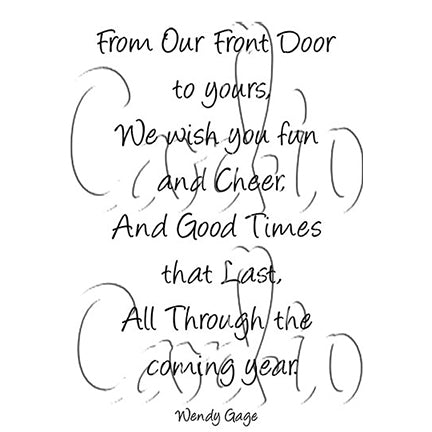 From Our Front Door
to yours,
We wish you fun
and Cheer,
And Good Times
that Last,
All Through the
coming year.
Wendy Gage